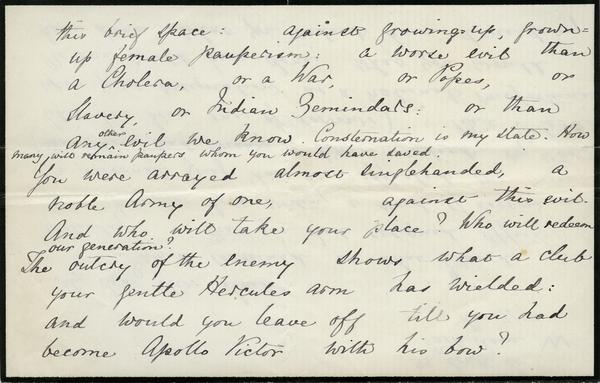 this brief space: against growing up, grown=
up female pauperism: a worse evil than
a Cholera, or a War, or Popes, or
Slavery, or Indian Zemindars: or than
Any other Evil we know Consternation is my state. How
many will remain paupers whom you would have saved.
You were arrayed almost singlehanded, a
noble Army of one, against this evil.
And who will take your place? Who will redeem
our generation?
The outcry of the enemy shows what a club
your gentle Hercules arm has wielded:
and would you leave off till you had
become Apollo Victor with his bow?